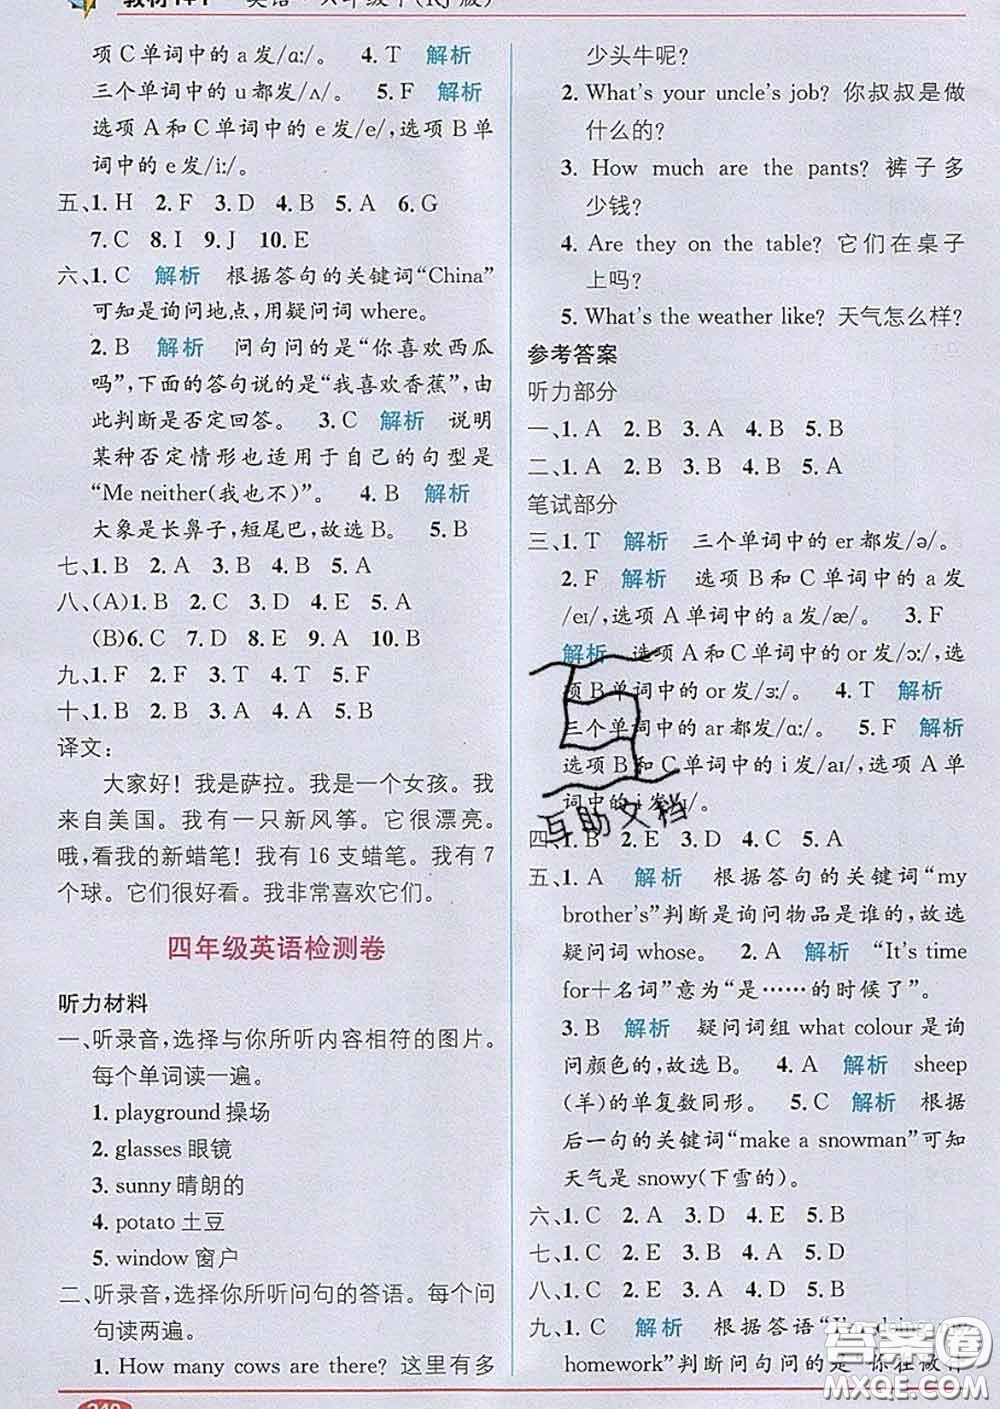 教材1+1 英语·六年级下(RJ版)
项C单词中的a发/ɑː/。 4. T 解析
三个单词中的u都发/ʌ/。 5. F 解析
选项A和C单词中的e发/e/,选项B单
词中的e发/iː/。
五、1. H 2. F 3. D 4. B 5. A 6. G
7. C 8. I 9. J 10. E
六、1. C 解析 根据答句的关键词“China”
可知是询问地点,用疑问词where。
2. B 解析 问句问的是“你喜欢西瓜
吗”,下面的答句说的是“我喜欢香蕉”,由
此判断是否定回答。 3. C 解析 说明
某种否定情形也适用于自己的句型是
“Me neither(我也不)”。 4. B 解析
大象是长鼻子,短尾巴,故选B。 5. B
七、1. B 2. A 3. B 4. B 5. A
八、(A)1. B 2. C 3. D 4. E 5. A
(B)6. C 7. D 8. E 9. A 10. B
九、1. F 2. F 3. T 4. T 5. F
十、1. B 2. A 3. B 4. C 5. A
译文:
大家好!我是萨拉。我是一个女孩。我
来自美国。我有一只新风筝。它很漂亮。
哦,看我的新蜡笔!我有16支蜡笔。我有7
个球。它们很好看。我非常喜欢它们。
四年级英语检测卷
听力材料
一、听录音,选择与你所听内容相符的图片。
每个单词读一遍。
1. playground 操场
2. glasses 眼镜
3. sunny 晴朗的
4. potato 土豆
5. window 窗户
二、听录音,选择你所听问句的答语。每个问
句读两遍。
1. How many cows are there? 这里有多
少头牛呢?
2. What's your uncle's job? 你叔叔是做
什么的?
3. How much are the pants? 裤子多
少钱?
4. Are they on the table? 它们在桌子
上吗?
5. What's the weather like? 天气怎么样?
参考答案
听力部分
一、1. A 2. B 3. A 4. B 5. B
二、1. A 2. B 3. B 4. A 5. B
笔试部分
三、1. T 解析 三个单词中的er都发/ə/。
2. F 解析 选项B和C单词中的a发
/eɪ/,选项A单词中的a发/æ/。 3. F
解析 选项A和C单词中的or发/ɔː/,选
项B单词中的or发/ɜː/。 4. T 解析
三个单词中的ar都发/ɑː/。 5. F 解析
选项B和C单词中的i发/aɪ/,选项A单
词中的i发/ɪ/。
互助文档
四、1. B 2. E 3. D 4. C 5. A
五、1. A 解析 根据答句的关键词“my
brother's”判断是询问物品是谁的,故选
疑问词whose。 2. A 解析 “It's time
for+名词”意为“是……的时候了”。
3. B 解析 疑问词组what colour是询
问颜色的,故选B。 4. A 解析 sheep
(羊)的单复数同形。 5. C 解析 根据
后一句的关键词“make a snowman”可知
天气是snowy(下雪的)。
六、1. C 2. A 3. D 4. E 5. B
七、1. C 2. E 3. B 4. A 5. D
八、1. C 2. E 3. A 4. D 5. B
九、1. C 解析 根据答语“I'm doing my
homework”判断问句问的是“你在做什
答案圈
MXQE.COM
240